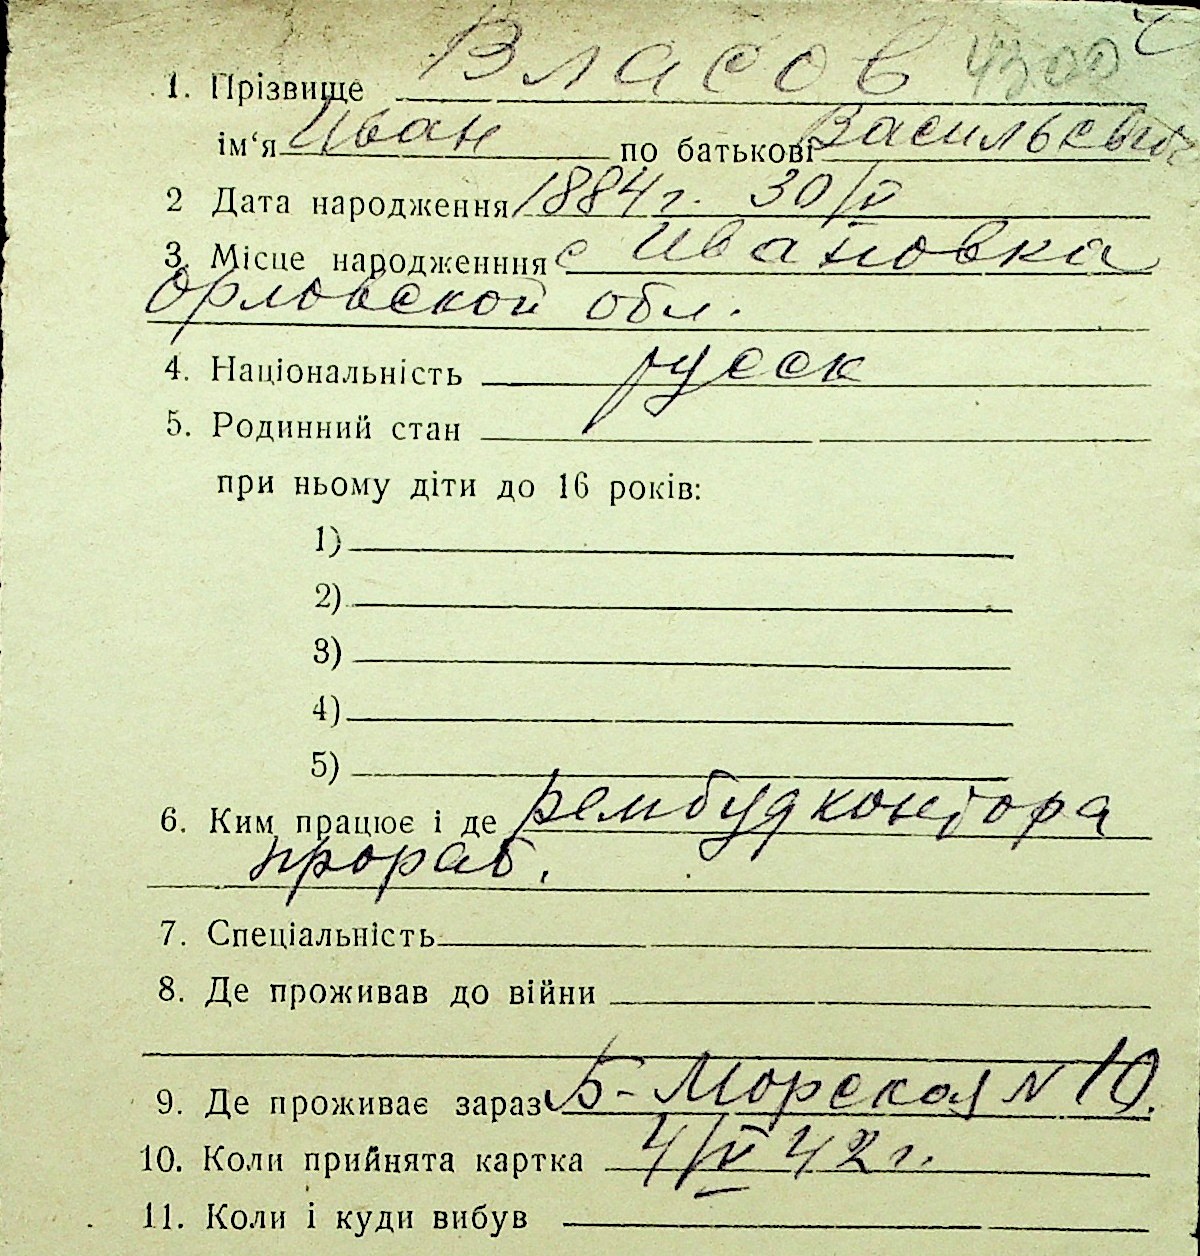 1. Прізвище Власов 4300
ім‘я Иван по батькові Васильевич
2 Дата народження 1884 г. 30/V
3. Місце народженння с Ивановка
Орловской обл.
4. Національність русск
5. Родинний стан
при ньому діти до 16 років:
1)
2)
3)
4)
5)
6. Ким працює і де рембудконтора
прораб.
7. Спеціальність
8. Де проживав до війни
9. Де проживає зараз Б-Морская N 10.
10. Коли прийнята картка 4/V 42 г.
11. Коли і куди вибув